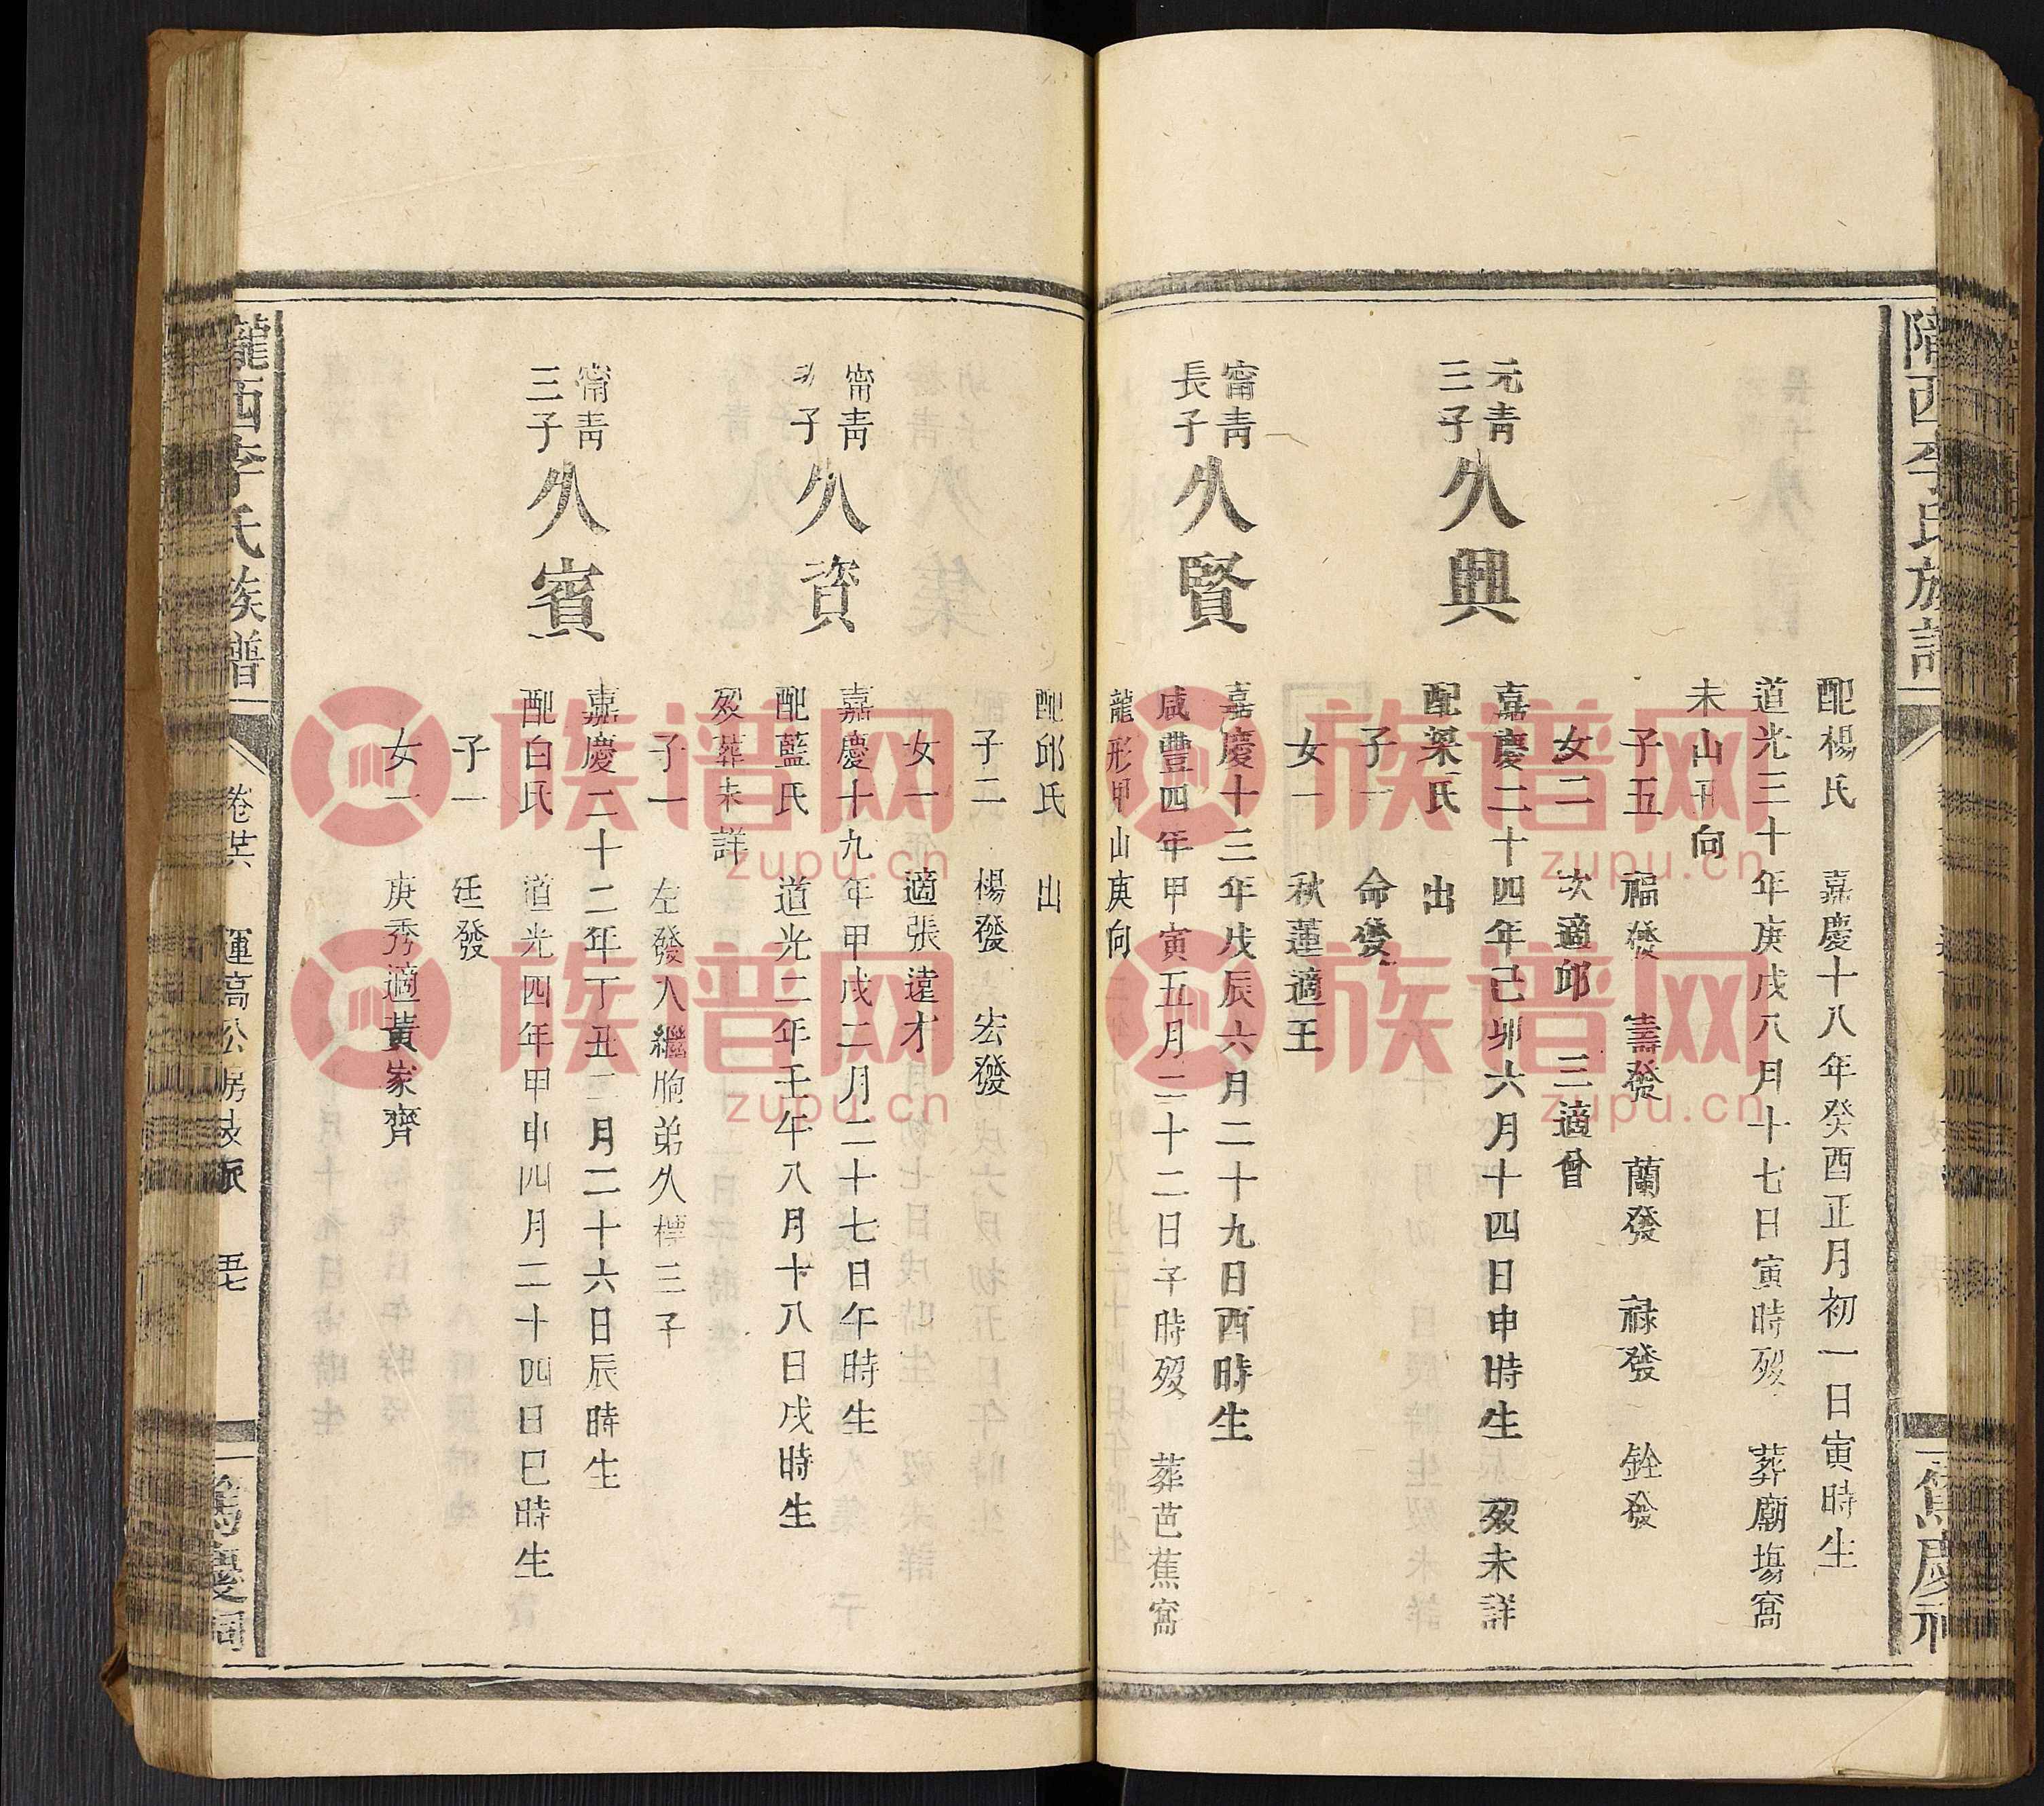 隴西李氏族譜
餘慶祠
配楊氏　嘉慶十八年癸酉正月初一日寅時生
道光三十年庚戌八月十七日寅時歿　葬廟塲窩
未山　向
子五　福發　壽發　蘭發　祿發　銓發
女二　次適邱　三適曾
元青
三子
久興
嘉慶二十四年己卯六月十四日申時生　歿未詳
配梁氏　出
子一　命發
女一　秋蓮適王
甯青
長子
久賢
嘉慶十三年戊辰六月二十九日酉時生
咸豐四年甲寅五月二十二日子時歿　葬芭蕉窩
龍形甲山庚向
配邱氏　出
子二　楊發　宏發
女一　適張遠才
甯青
子
久資
嘉慶十九年甲戌二月二十七日午時生
配藍氏　道光二年壬午八月十八日戌時生
歿葬未詳
子一　左發入繼胞弟久標三子
甯青
三子
久賓
嘉慶二十二年丁丑二月二十六日辰時生
配白氏　道光四年甲申四月二十四日巳時生
子一　廷發
女一　庚秀適黃家齊
隴西李氏族譜
卷廿六　運高公房支派　五七
餘慶祠
族谱网
zupu.cn
族谱网
zupu.cn
族谱网
zupu.cn
族谱网
zupu.cn